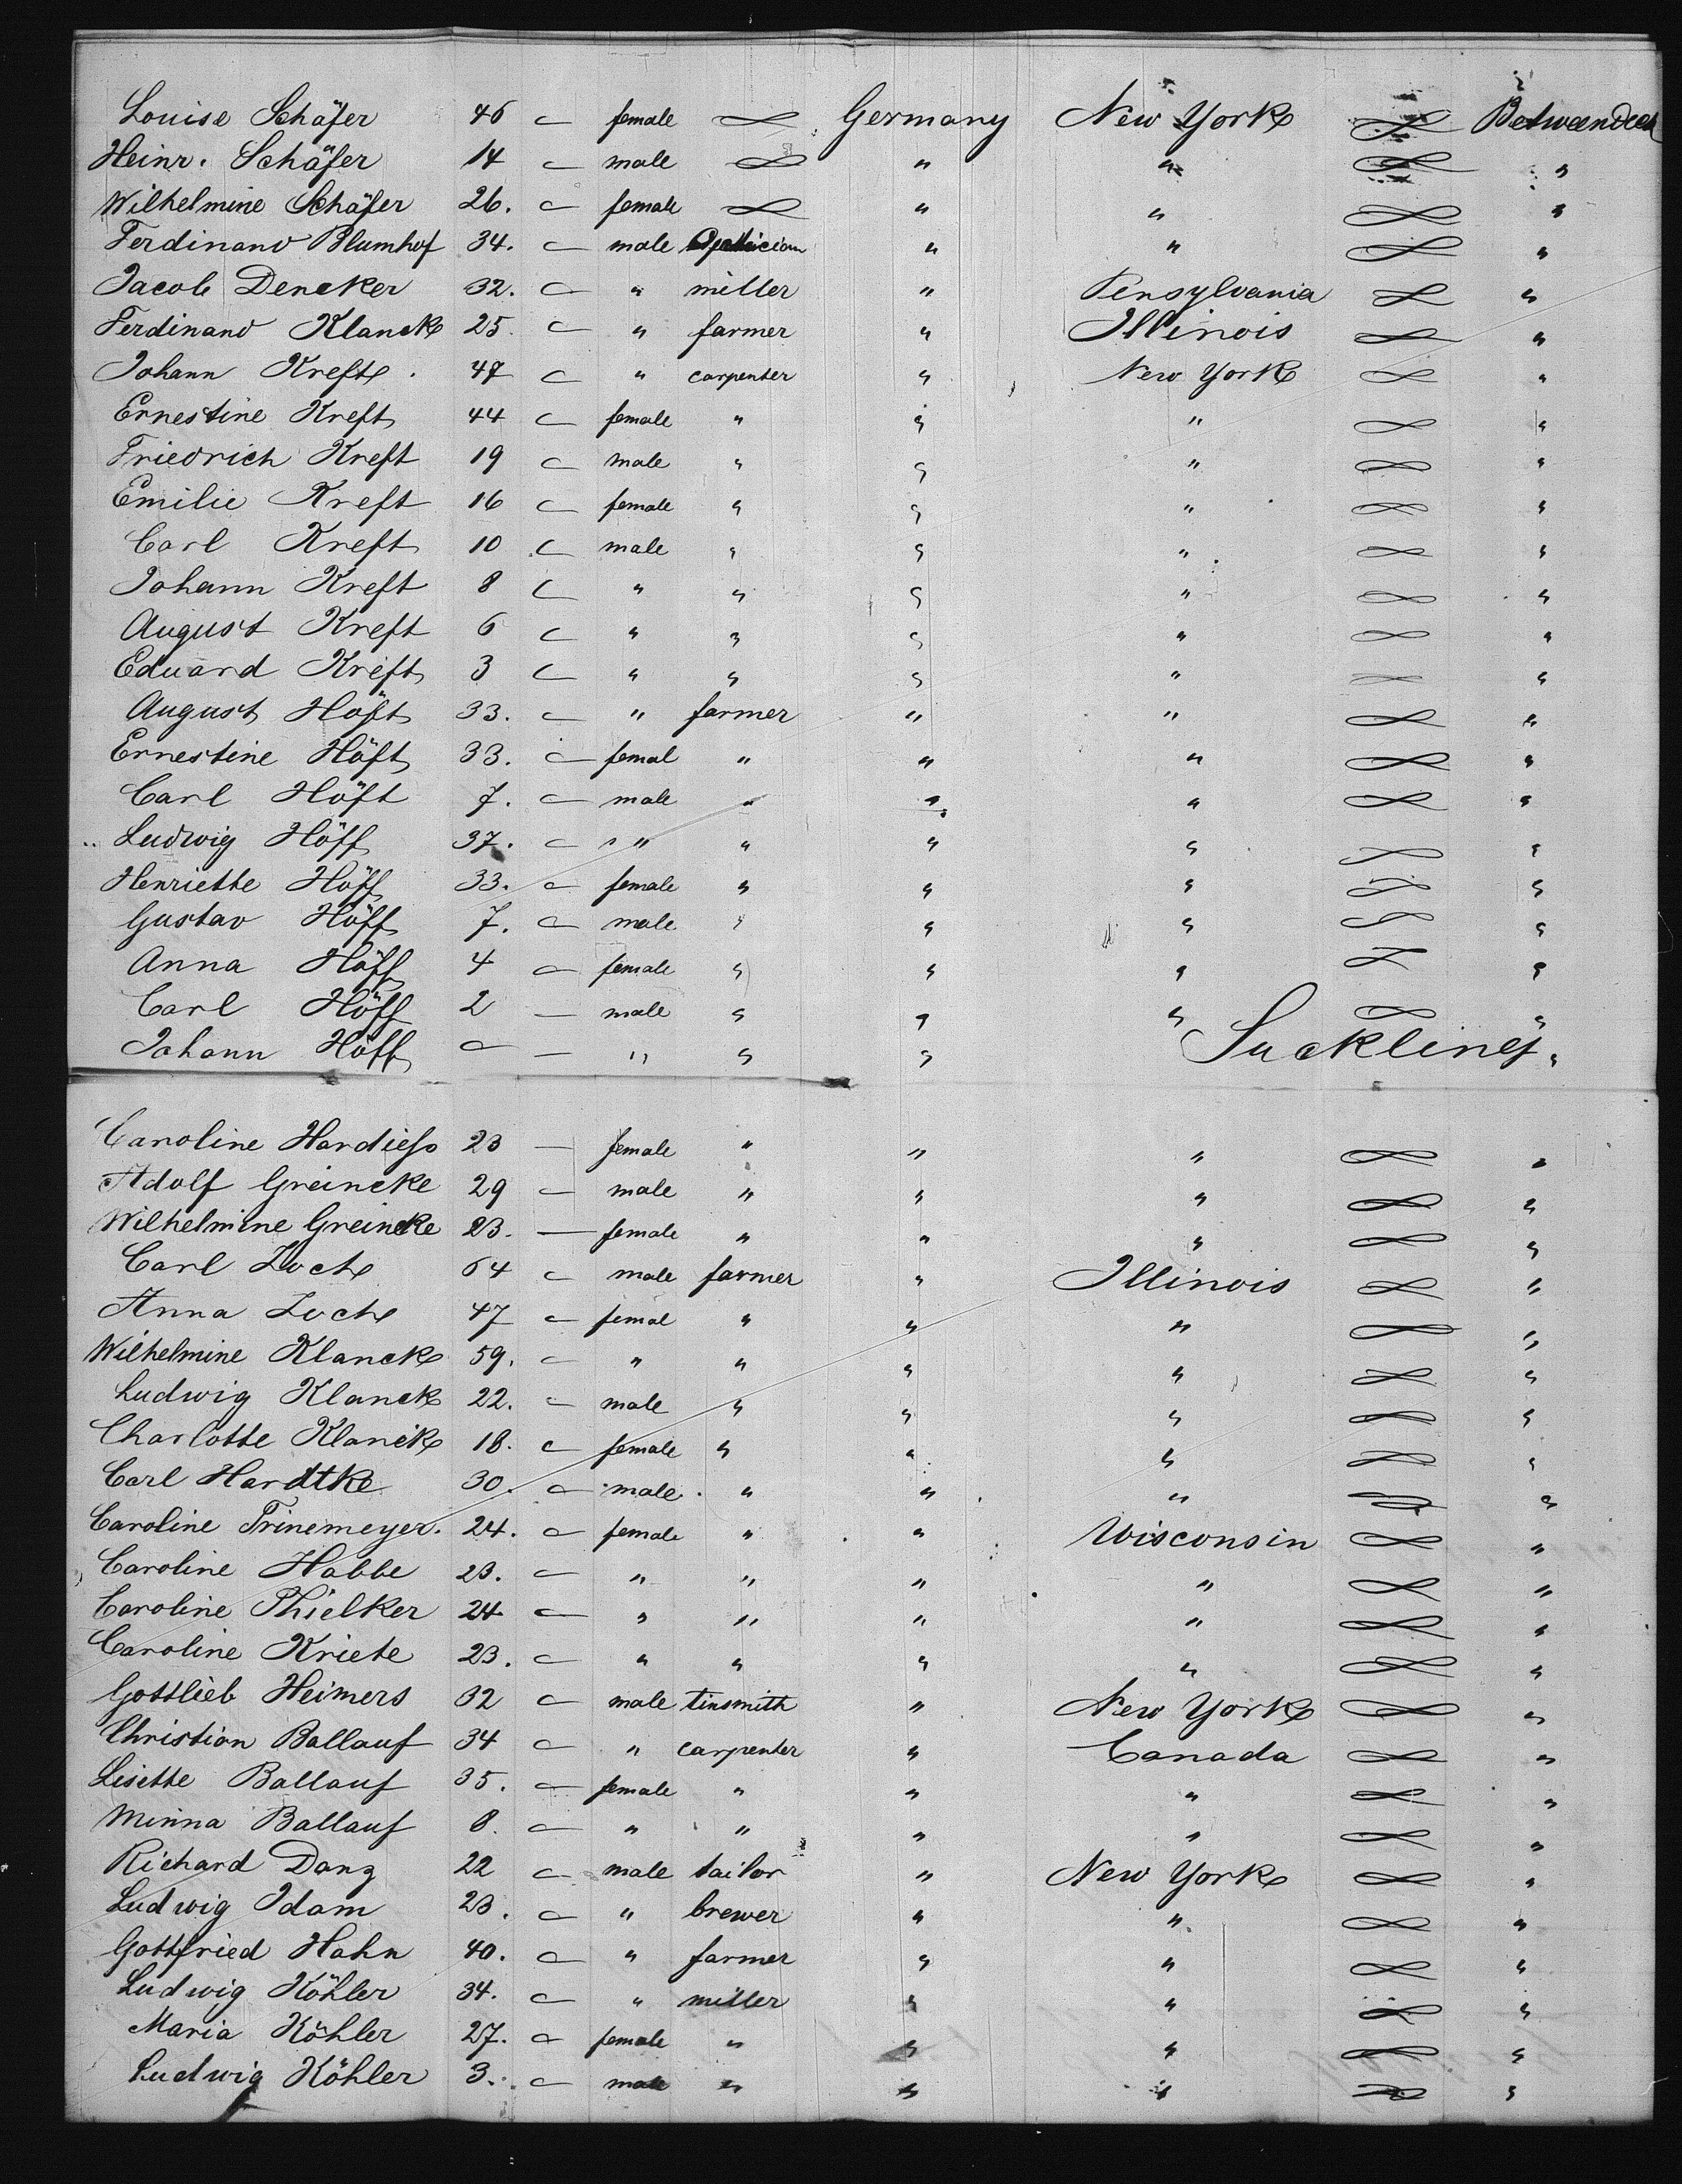 Louise Schäfer 46 female Germany New York Betweendeck
Heinr. Schäfer 14 male " " "
Wilhelmine Schäfer 26. female " " "
Ferdinand Blumhof 34. male " " "
Jacob Dencker 32. " miller " Pensylvania "
Ferdinand Klanck 25. " farmer " Illinois "
Johann Kreft. 47 " carpenter " New York "
Ernestine Kreft 44 female " " " "
Friedrich Kreft 19 male " " " "
Emilie Kreft 16 female " " " "
Carl Kreft 10 male " " " "
Johann Kreft 8 " " " " "
August Kreft 6 " " " " "
Eduard Kreft 3 " " " " "
August Höft 33. " farmer " " "
Ernestine Höft 33. femal " " " "
Carl Höft 7. male " " " "
Ludwig Höff 37. " " " " "
Henriette Höff 33. female " " " "
Gustav Höff 7. male " " " "
Anna Höff 4 female " " " "
Carl Höff 2 male " " " "
Johann Höff " " " Suckling "
Caroline Hardieß 23 female " " " "
Adolf Greincke 29 male " " " "
Wilhelmine Greincke 23. female " " " "
Carl Zoch 64 male farmer " Illinois "
Anna Zoch 47 femal " " " "
Wilhelmine Klanck 59. " " " " "
Ludwig Klanck 22. male " " " "
Charlotte Klanck 18. female " " " "
Carl Hardtke 30. male " " " "
Caroline Trinemeyer. 24. female " " Wisconsin "
Caroline Habbe 23. " " " " "
Caroline Thielker 24 " " " " "
Caroline Kriete 23. " " " " "
Gottlieb Heimers 32 male tinsmith " New York "
Christian Ballauf 34 " carpenter " Canada "
Lisette Ballauf 35. female " " " "
Minna Ballauf 8. " " " " "
Richard Danz 22 male tailor " New York "
Ludwig Idam 23. " brewer " " "
Gottfried Hahn 40. " farmer " " "
Ludwig Köhler 34. " miller " " "
Maria Köhler 27. female " " " "
Ludwig Köhler 3. male " " " "